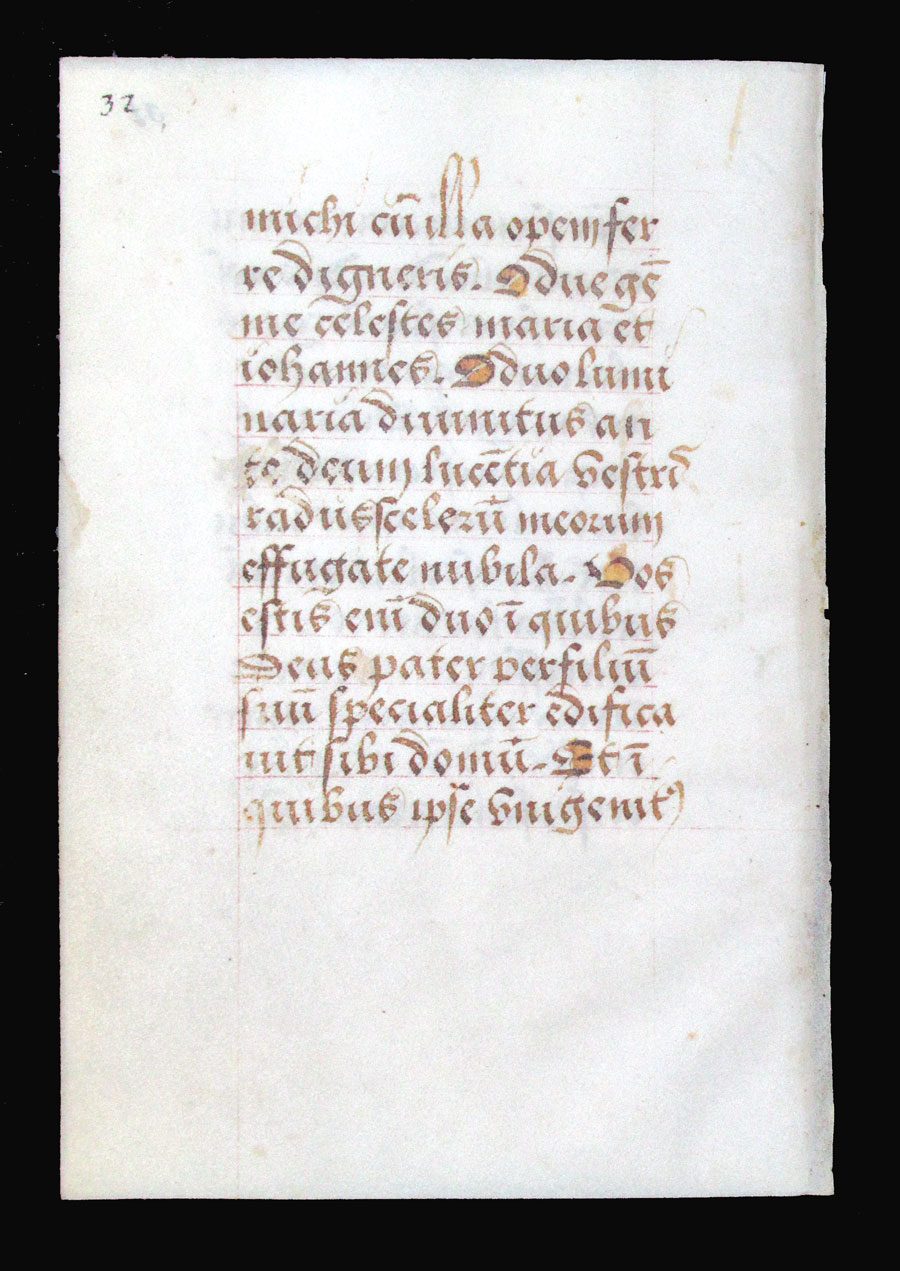 32
michi cū illa opem fer
re digneris. O due gē
me celestes maria et
iohannes. O duo lumi
naria diuinitus an
te deum lucētia vestrī
radiis scelerū meorum
effugate nubila. Vos
estis enī duo ī quibus
Deus pater per filiū
suū specialiter edifica
uit sibi domū. Et ī
quibus ipse vnigenit⁹